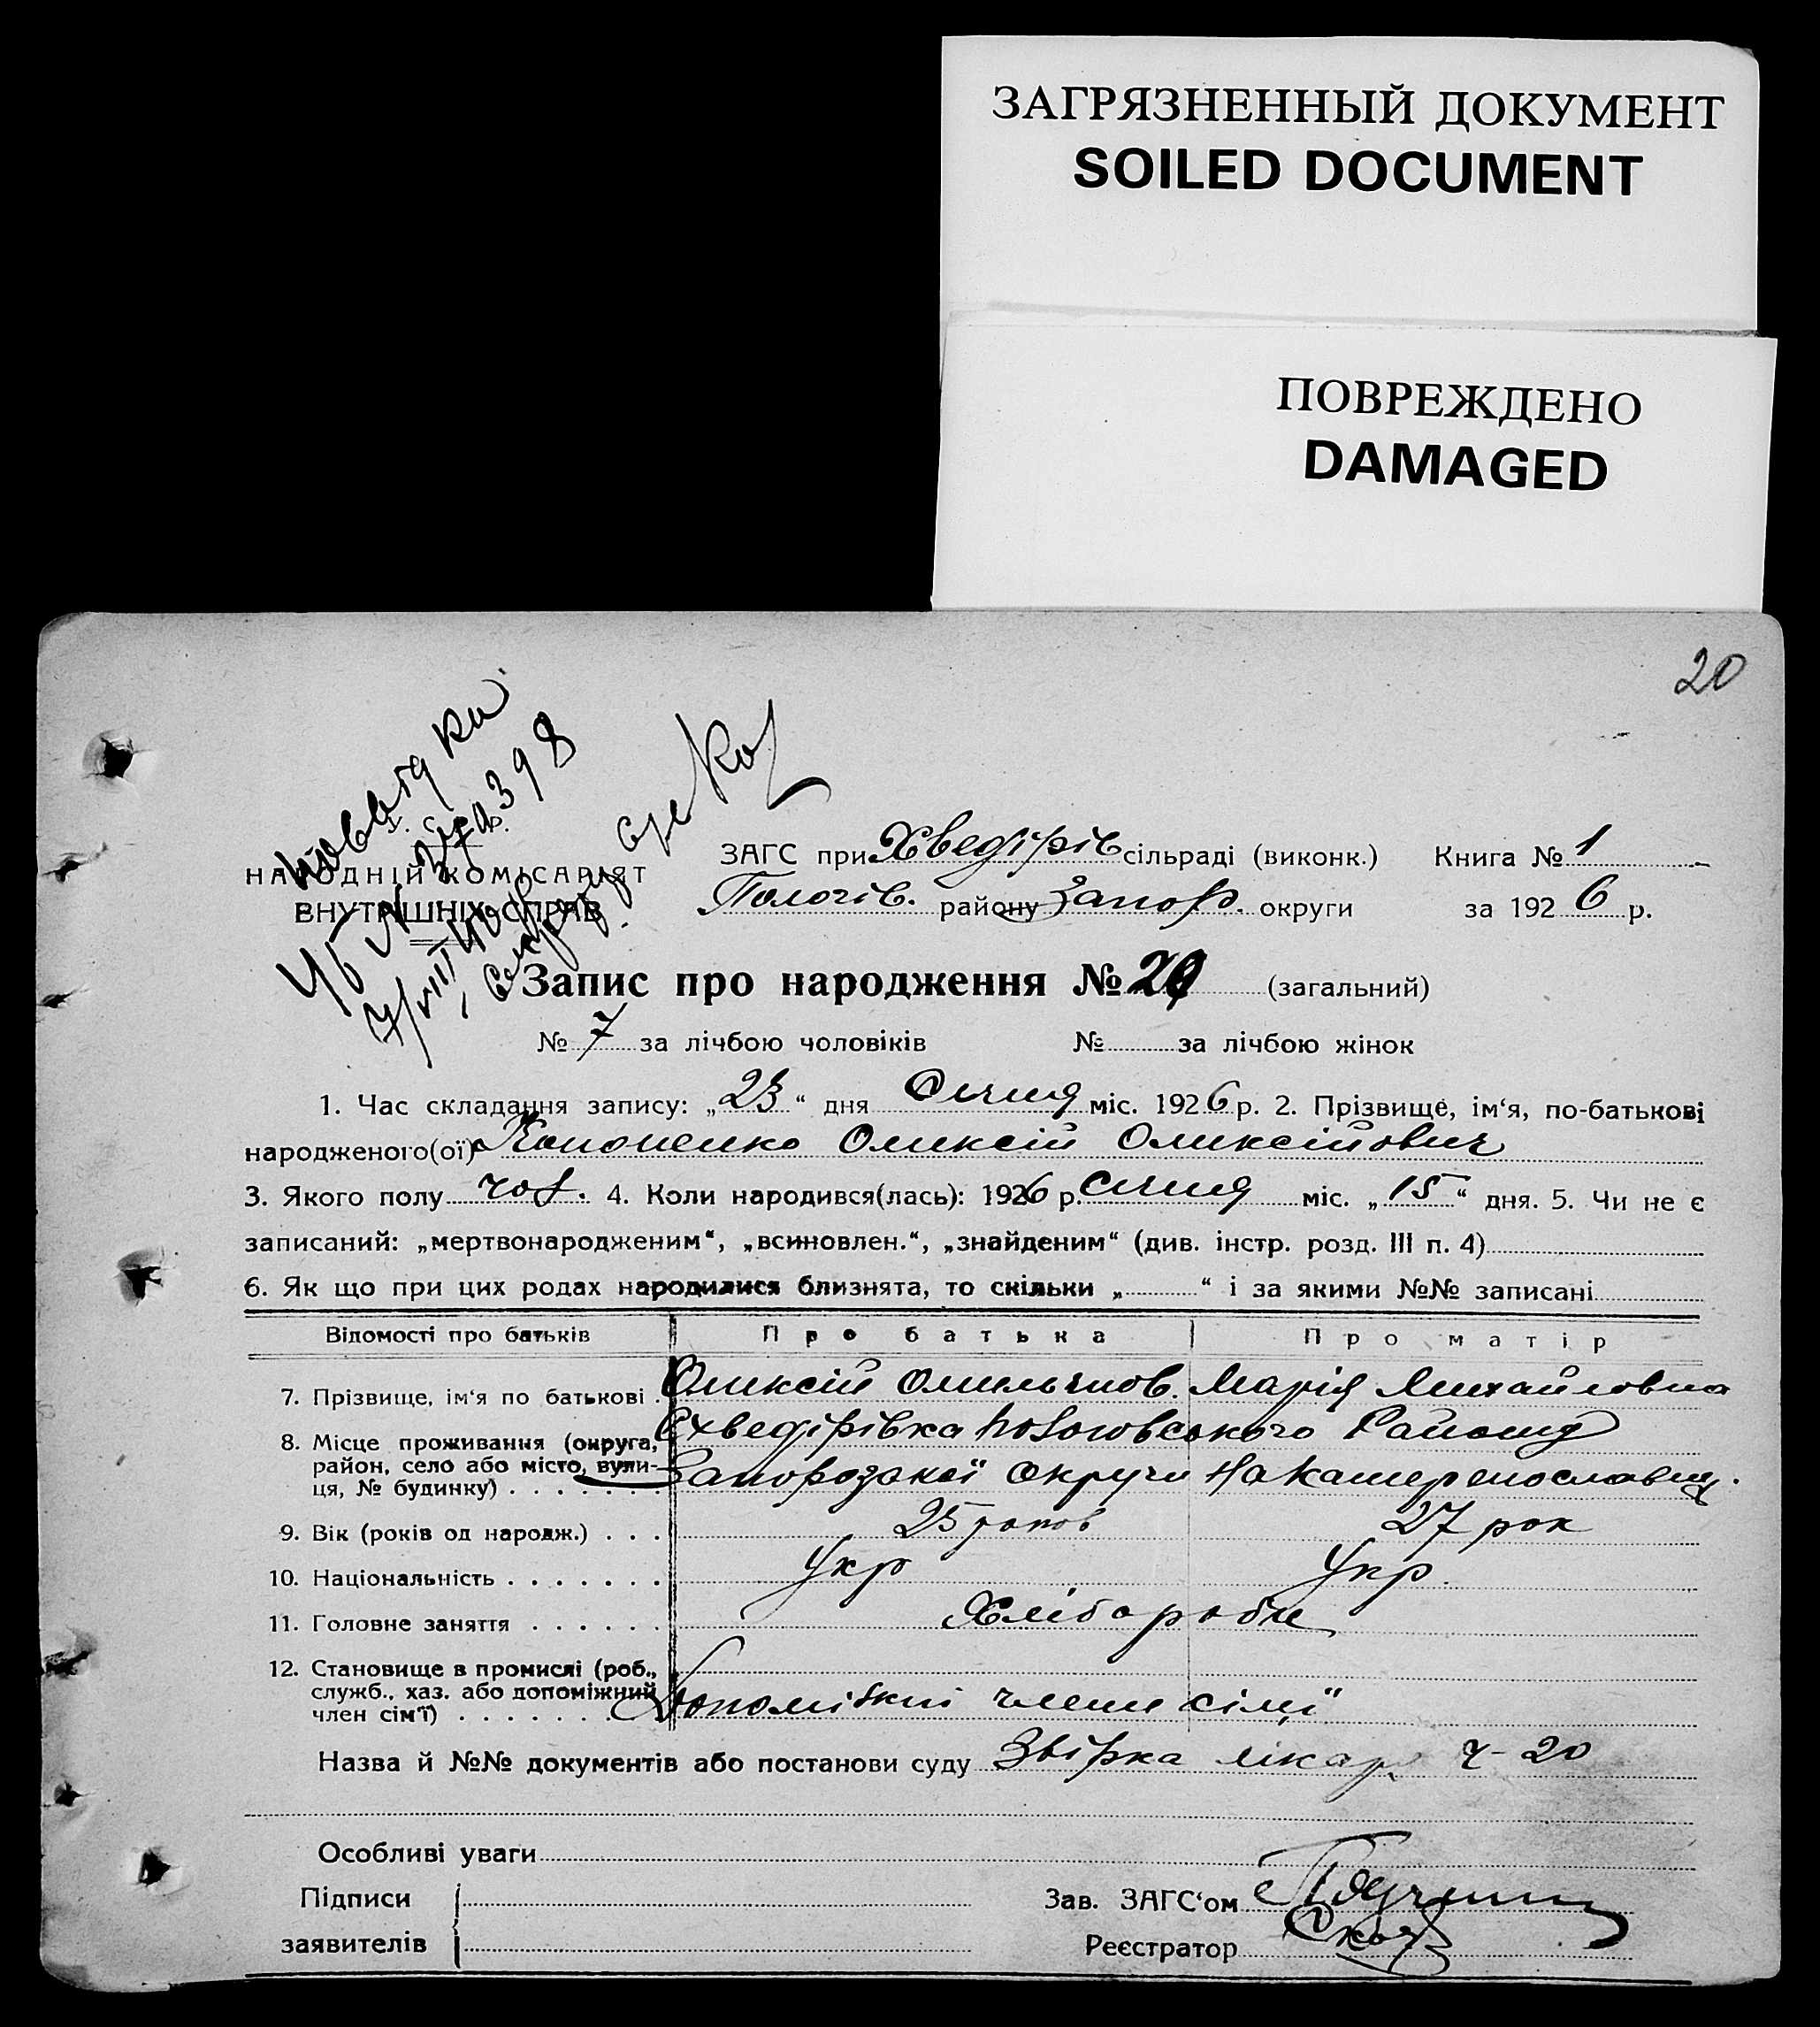 ЗАГРЯЗНЕННЫЙ ДОКУМЕНТ
SOILED DOCUMENT
ПОВРЕЖДЕНО
DAMAGED
20
НАРОДНІЙ КОМІСАРІЯТ
ВНУТРІШНІХ СПРАВ
ЗАГС при Хведірів сільраді (виконк.) Книга № 1
Пологів. району Запор. округи за 1926 р.
Запис про народження № 20 (загальний)
№ 7 за лічбою чоловіків № за лічбою жінок
1. Час складання запису: „23“ дня Січня міс. 1926 р. 2. Прізвище, ім‘я, по-батькові
народженого(ої) Кононенко Оликсій Оликсійович
3. Якого полу чол. 4. Коли народився(лась): 1926 р. Січня міс. „15“ дня. 5. Чи не є
записаний: „мертвонародженим“, „всиновлен.“, „знайденим“ (див. інстр. розд. III п. 4)
6. Як що при цих родах народилися близнята, то скільки „ “ і за якими №№ записані
Відомості про батьків Про батька Про матір
7. Прізвище, ім‘я по батькові Оликсій Марія Михайловна
8. Місце проживання (округа, район, село або місто, вулиця, № будинку) Хведірівка Району
Запорозкої Округи на
9. Вік (років од народж.) 25 років 27 рок
10. Національність Укр Укр.
11. Головне заняття Хлібороби
12. Становище в промислі (роб., служб., хаз. або допоміжний член сім‘ї) члени сімї
Назва й №№ документів або постанови суду лікар ч-20
Особливі уваги
Підписи
заявителів
Зав. ЗАГС‘ом
Реєстратор